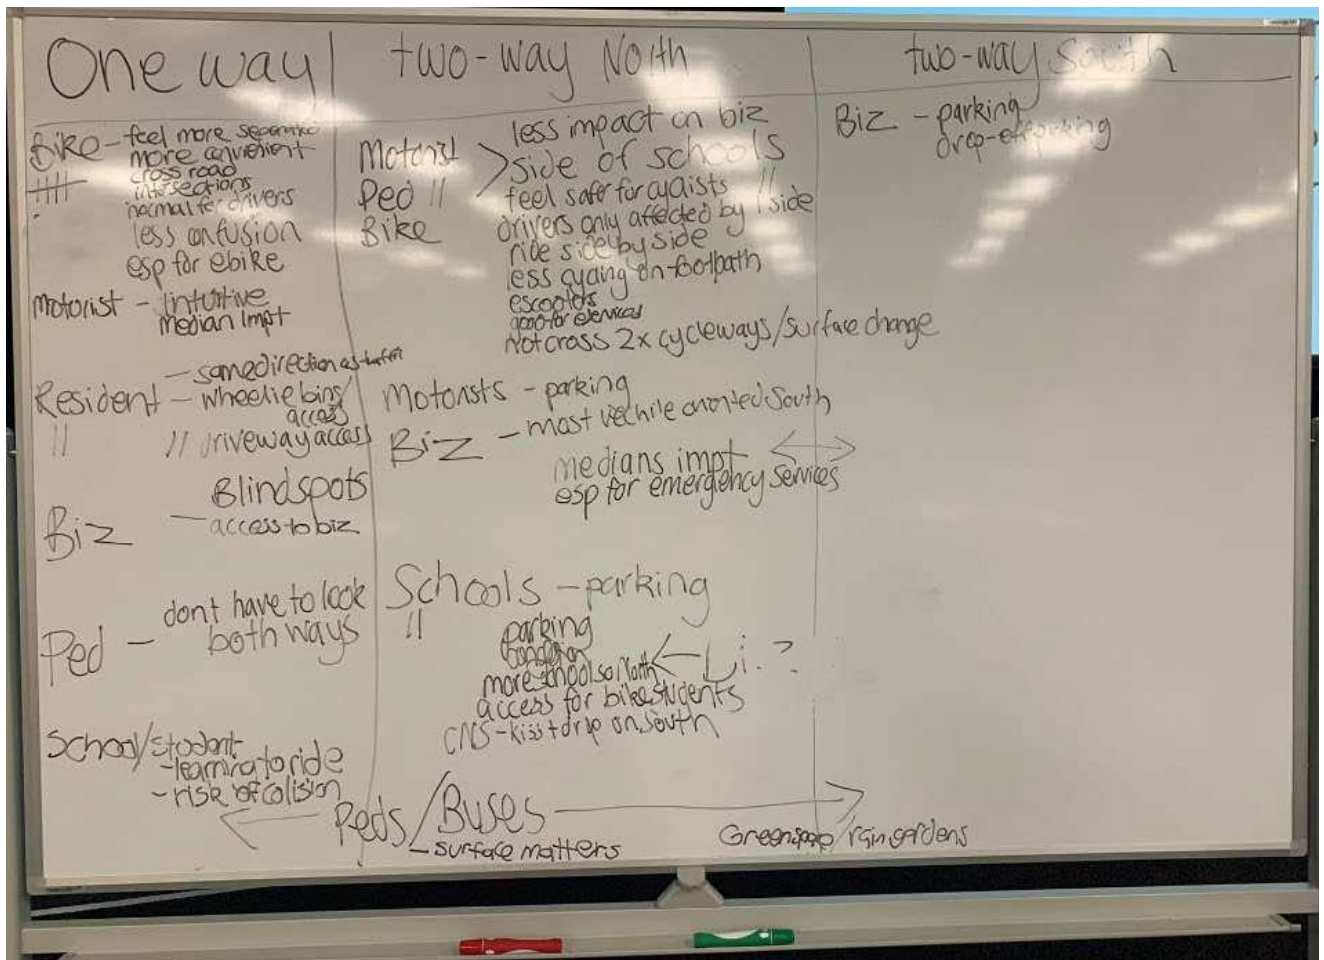 One way
Bike - feel more seperated
more convenient
cross road
intersections
normal for drivers
less confusion
esp for ebike
Motorist - intuitive
median impt
- same direction as traffic
Resident - wheelie bins/
access
" " driveway access
Blindspots
Biz - access to biz
Ped - dont have to look
both ways
School/student
- learning to ride
- risk of collision
two-way North
less impact on biz
Motorist > side of schools
Ped "
feel safer for cyclists "
Bike drivers only affected by 1 side
ride side by side
less cycling on footpath
escooters
good for eservices
Not cross 2x cycleways/surface change
Motorists - parking
Biz - most vechile oriented South
medians impt
esp for emergency services
Schools - parking
" parking
more schools on North
access for bike students
CNS - kiss + drop on South
Peds/Buses
- surface matters
two-way South
Biz - parking
drop-off parking
Greenspace/raingardens